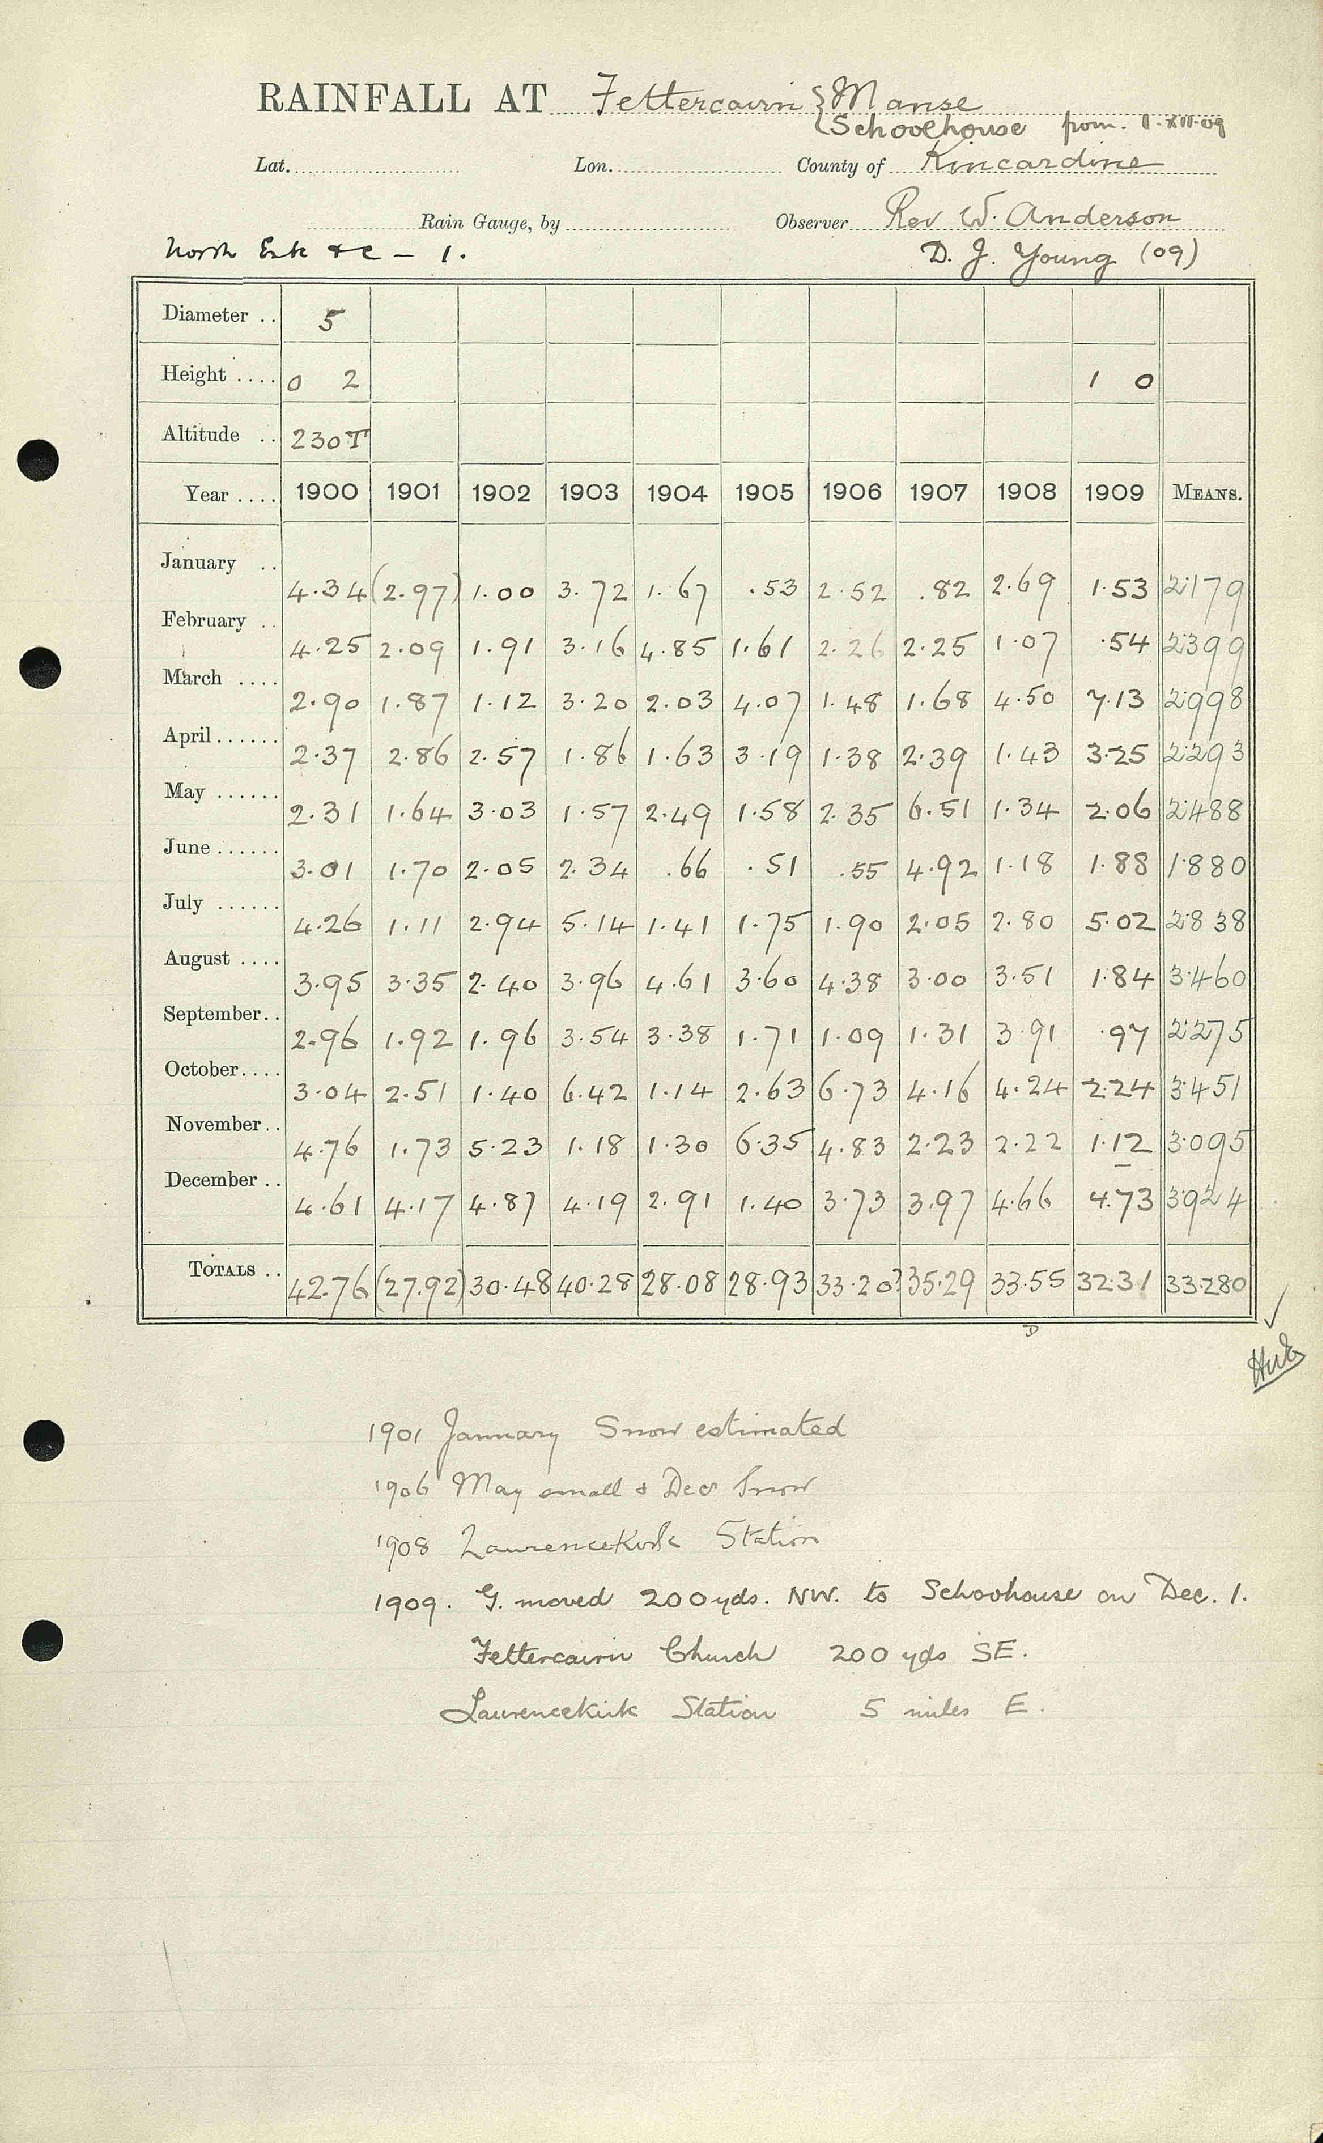 RAINFALL AT Fettercairn { Manse
{ Schoolhouse from 1.XII.09
Lat. Lon. County of Kincardine
Rain Gauge, by Observer Rev W. Anderson
North Esk &c – 1. D. J. Young (09)
Diameter .. 5
Height .... 0 2 1 0
Altitude .. 230T
Year .... 1900 1901 1902 1903 1904 1905 1906 1907 1908 1909 MEANS.
January .. 4.34 (2.97) 1.00 3.72 1.67 .53 2.52 .82 2.69 1.53 2.179
February .. 4.25 2.09 1.91 3.16 4.85 1.61 2.26 2.25 1.07 .54 2.399
March .... 2.90 1.87 1.12 3.20 2.03 4.07 1.48 1.68 4.50 7.13 2.998
April ...... 2.37 2.86 2.57 1.86 1.63 3.19 1.38 2.39 1.43 3.25 2.293
May ...... 2.31 1.64 3.03 1.57 2.49 1.58 2.35 6.51 1.34 2.06 2.488
June ...... 3.01 1.70 2.05 2.34 .66 .51 .55 4.92 1.18 1.88 1.880
July ...... 4.26 1.11 2.94 5.14 1.41 1.75 1.90 2.05 2.80 5.02 2.838
August .... 3.95 3.35 2.40 3.96 4.61 3.60 4.38 3.00 3.51 1.84 3.460
September.. 2.96 1.92 1.96 3.54 3.38 1.71 1.09 1.31 3.91 .97 2.275
October.... 3.04 2.51 1.40 6.42 1.14 2.63 6.73 4.16 4.24 2.24 3.451
November.. 4.76 1.73 5.23 1.18 1.30 6.35 4.83 2.23 2.22 1.12 3.095
December .. 4.61 4.17 4.87 4.19 2.91 1.40 3.73 3.97 4.66 4.73 3.924
TOTALS .. 42.76 (27.92) 30.48 40.28 28.08 28.93 33.20? 35.29 33.55 32.31 33.280
1901 January Snow estimated
1906 May small & Decr Snow
1908 Laurencekirk Station
1909. G. moved 200 yds. NW. to Schoolhouse on Dec. 1.
Fettercairn Church 200 yds SE.
Laurencekirk Station 5 miles E.